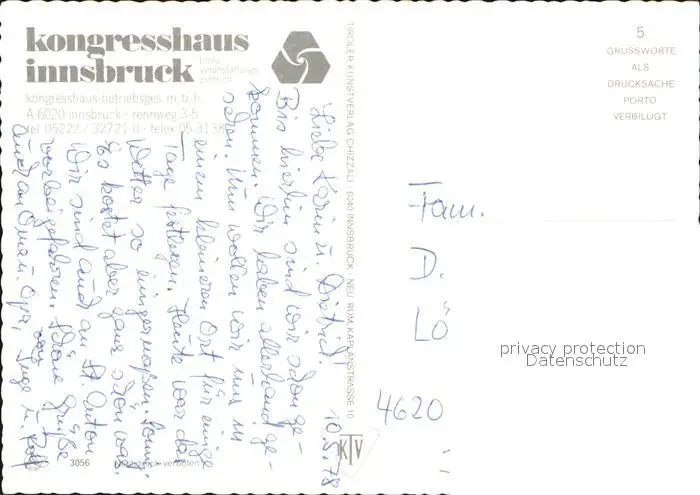 kongresshaus
innsbruck
tiroler
veranstaltungs
zentrum
kongresshaus-betriebsges. m. b. h.
A-6020 innsbruck · rennweg 3-5
tel 05222 / 32721 0 · telex 05 3138
TIROLER KUNSTVERLAG CHIZZALI 6040 INNSBRUCK, NEU-RUM, KAPLANSTRASSE 10
5
GRUSSWORTE
ALS
DRUCKSACHE
PORTO
VERBILLIGT
10.5.78
Liebe Karin u. Dietrich.
Bis hierhin sind wir schon ge-
kommen. Wir haben allerhand ge-
sehen. Nun wollen wir uns in
einem kleineren Ort für einige
Tage festlegen. Heute war das
Wetter so einigermaßen. Sonne.
Es kostet aber ganz schön was.
Wir sind auch an St. Anton
vorbeigefahren. Schöne Grüße
auch an Oma u. Opa, von Inge u. Rolf
Fam.
D.
Lö
4620
privacy protection
Datenschutz
KTV
3056
verboten